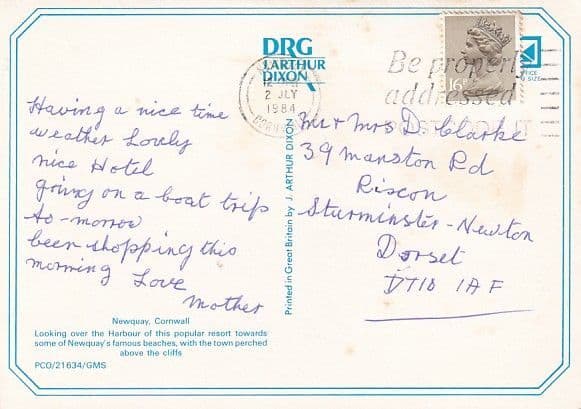 DRG
J.ARTHUR
DIXON
2 JLY
1984
CORNWALL
Be properly
addressed
16
Having a nice time
weather Lovely
nice Hotel
going on a boat trip
to-morrow
been shopping this
morning Love
Mother
Mr + Mrs D. Clarke
39 Manston Rd
Riscon
Sturminster-Newton
Dorset
DT10 1AF
Printed in Great Britain by J. ARTHUR DIXON
Newquay, Cornwall
Looking over the Harbour of this popular resort towards
some of Newquay's famous beaches, with the town perched
above the cliffs
PCO/21634/GMS